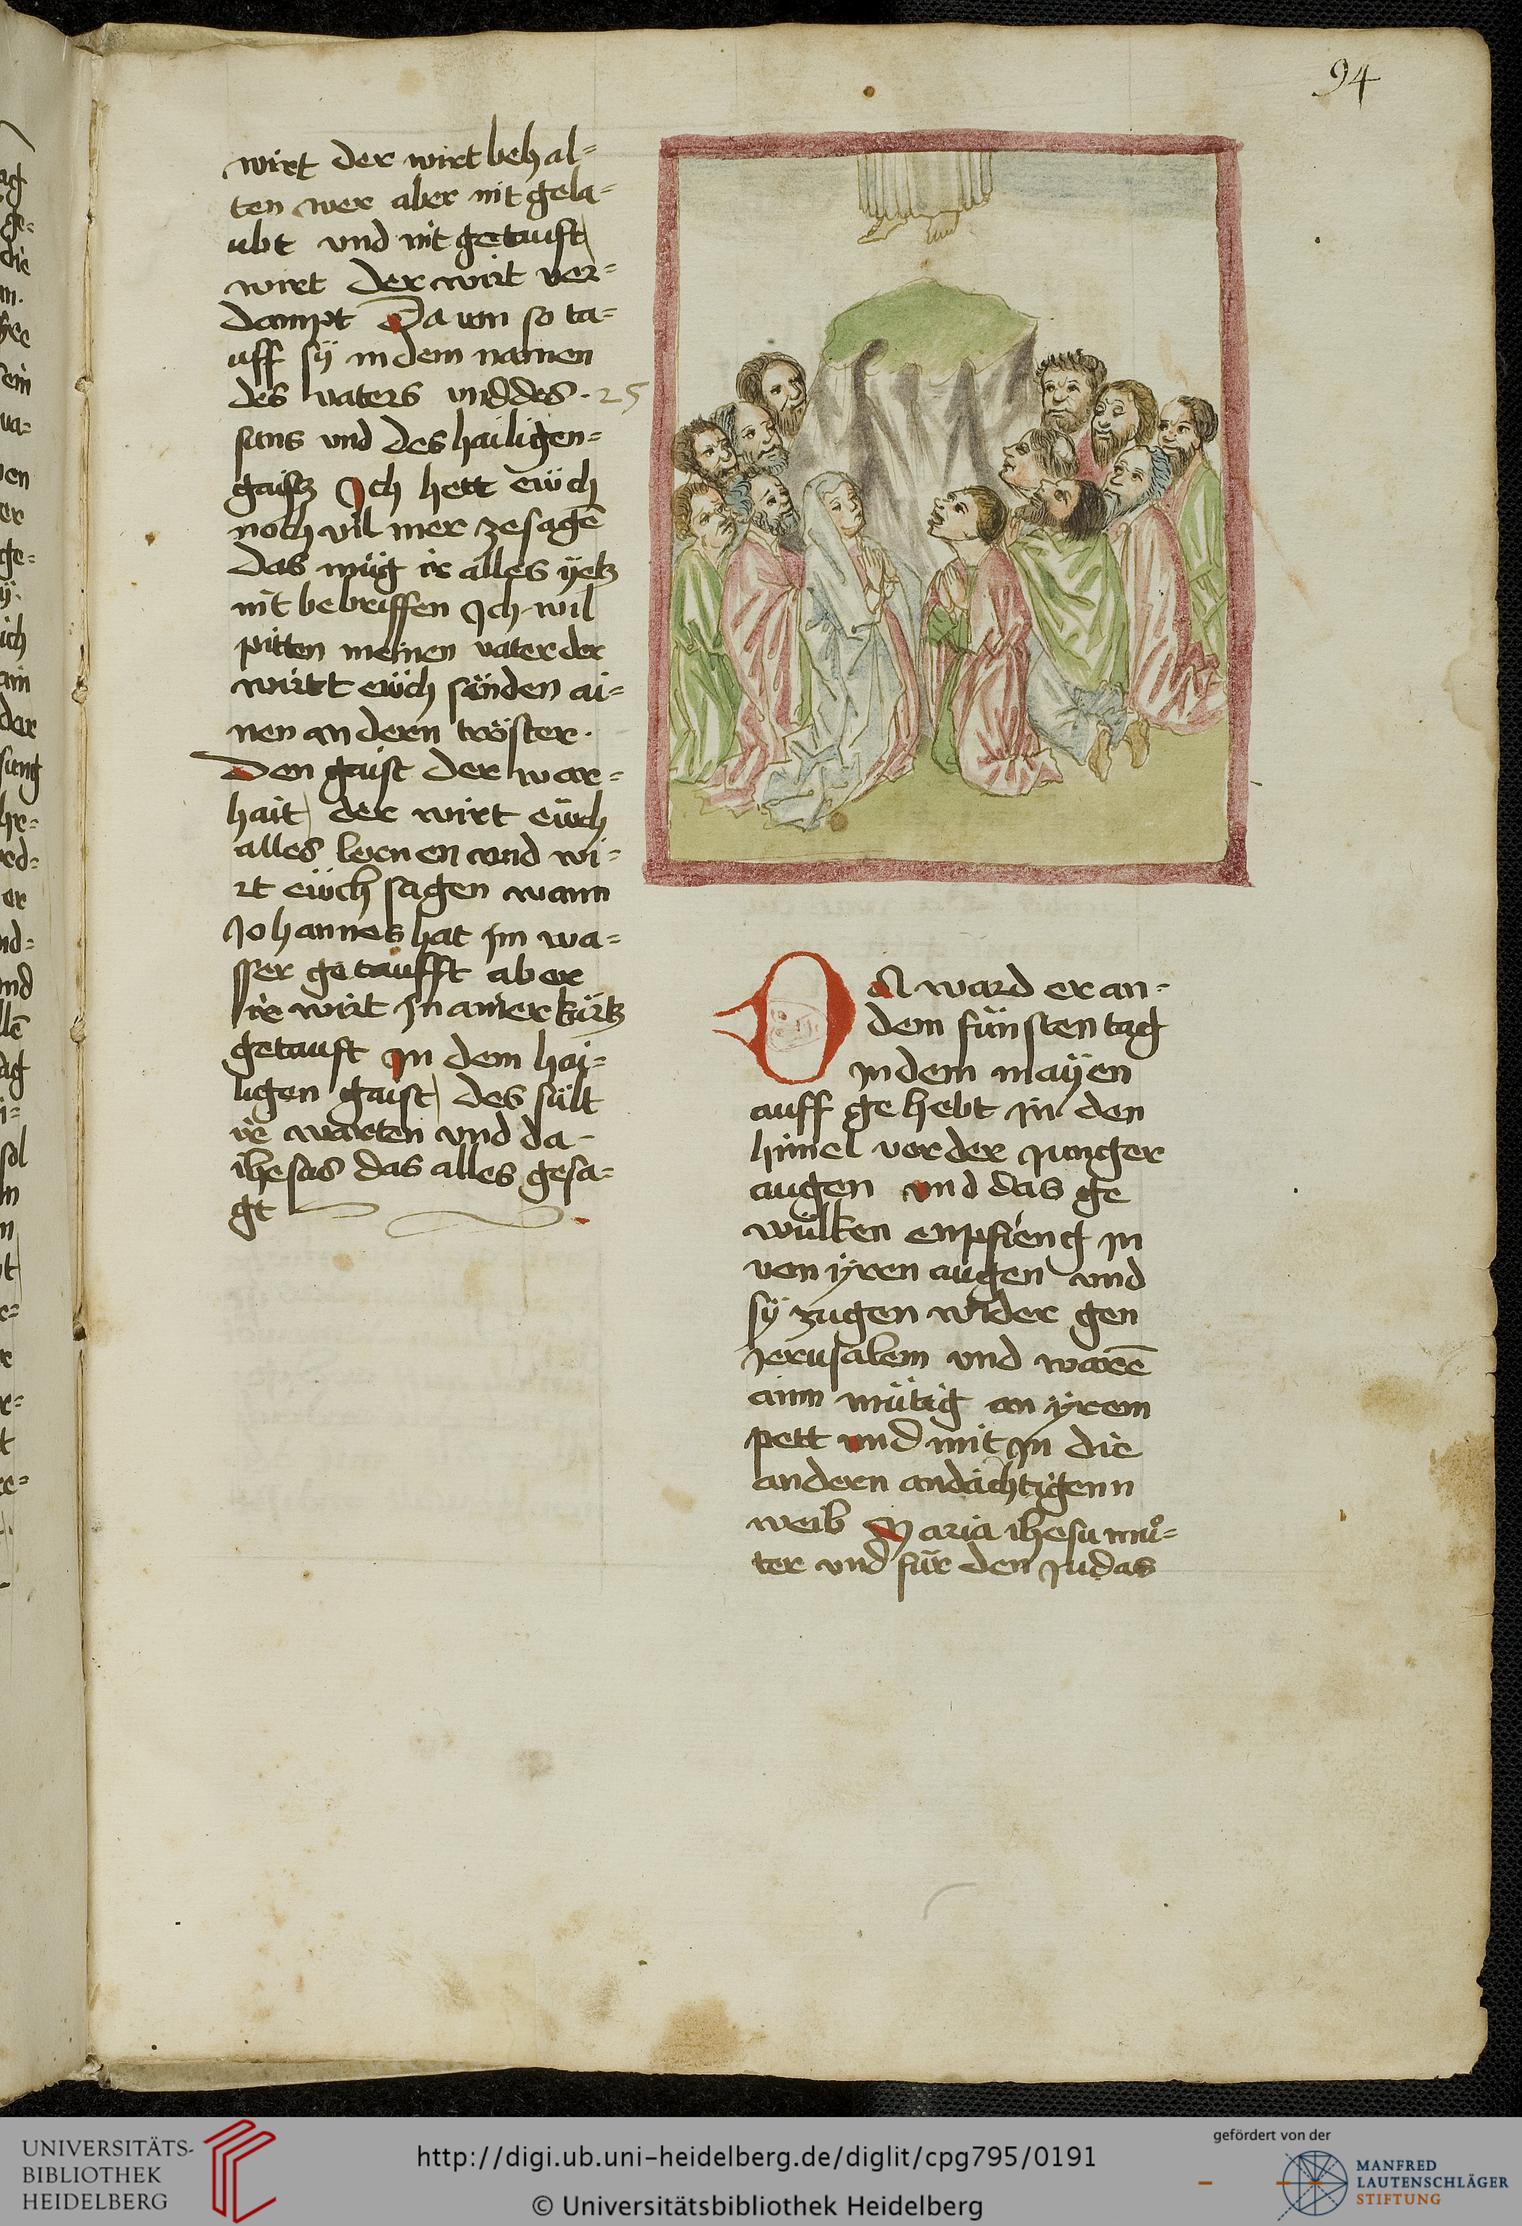 94
wirt der wirt behal=
ten wer aber nit gela=
ubt vnd nit getauft
wirt der wirt ver=
dampt Da von so ta=
uff sÿ in dem namen
des vaters vnd des · 25
suns vnd des hailigen=
gaistz Ich hett eüch
noch vil mer ze sagē
das müg ir alles ÿetz
nit bebriffen Ich wil
pitten meinen vater der
wirtt eüch sänden ai=
nen andern tröster ·
Den gaist der war=
hait der wirt eüch
alles lernen vnd wi=
rt eüch sagen wann
Johannes hat im wa=
sser getaufft aber
ir wirt In ainer kürtz
getauft In dem hai=
ligen gaist des sült
ir warten vnd da
ihesus das alles gesa=
gt
DA ward er an=
dem fünften tag
In dem maÿen
auff gehebt in den
himel vor der Junger
augen vnd das ge
wülken enpfieng in
von ÿren augen vnd
sÿ zugen wider gen
Jerusalem vnd warē
ainmütig an ÿrem
pett vnd mit In die
andern andächtigenn
weib Maria ihesu muͦ=
ter vnd für den Judas
UNIVERSITÄTS-
BIBLIOTHEK
HEIDELBERG
http://digi.ub.uni-heidelberg.de/diglit/cpg795/0191
© Universitätsbibliothek Heidelberg
gefördert von der
MANFRED
LAUTENSCHLÄGER
STIFTUNG